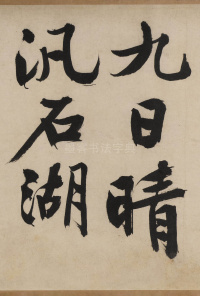 九日晴
汎石湖